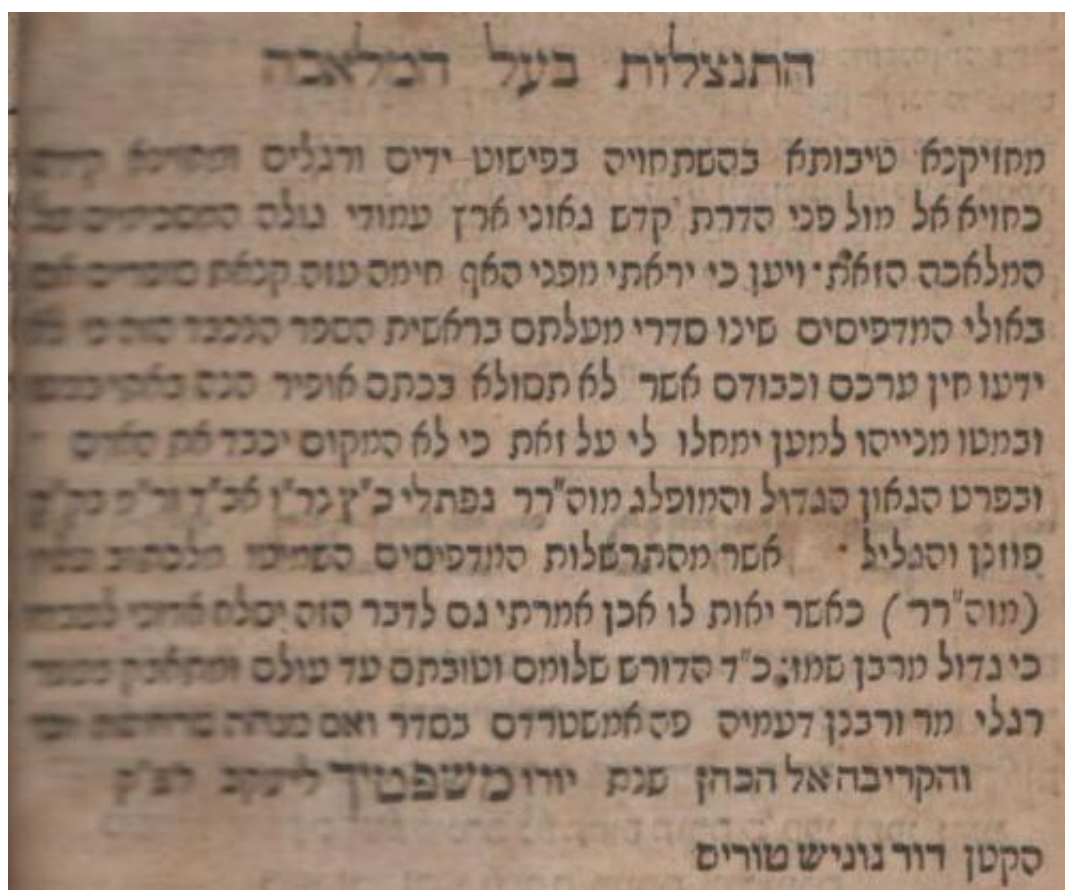 התנצלות בעל המלאכה
מחזיקנא טיבותא בהשתחויה בפישוט ידים ורגלים
כחויא אל מול פני הדרת קדש גאוני ארץ עמודי גולה המסכימים על
המלאכה הזאת· ויען כי יראתי מפני האף חימה עזה קנאת סופרים אם
באולי המדפיסים שינו סדרי מעלתם בראשית הספר הנכבד הזה כי לא
ידעו חין ערכם וכבודם אשר לא תסולא בכתם אופיר הנה באתי
ובמטו מנייהו למען ימחלו לי על זאת כי לא המקום יכבד את האדם
ובפרט הגאון הגדול והמופלג מוה"רר נפתלי כ"ץ נר"ו אב"ד ור"מ בק"ק
פוזנן והגליל · אשר מהתרשלות המדפיסים השמיטו מלכתוב
(מוה"רר) כאשר יאות לו אכן אמרתי גם לדבר הזה יסלח
כי גדול מרבן שמו: כ"ד הדורש שלומם וטובתם עד עולם ומתאבק בעפר
רגלי מר ורבנן דעמיה פה אמשטרדם בסדר ואם מנחה מרחשת
והקריבה אל הכהן שנת יורו משפטיך ליעקב לפ"ק
הקטן דוד נוניש טורים